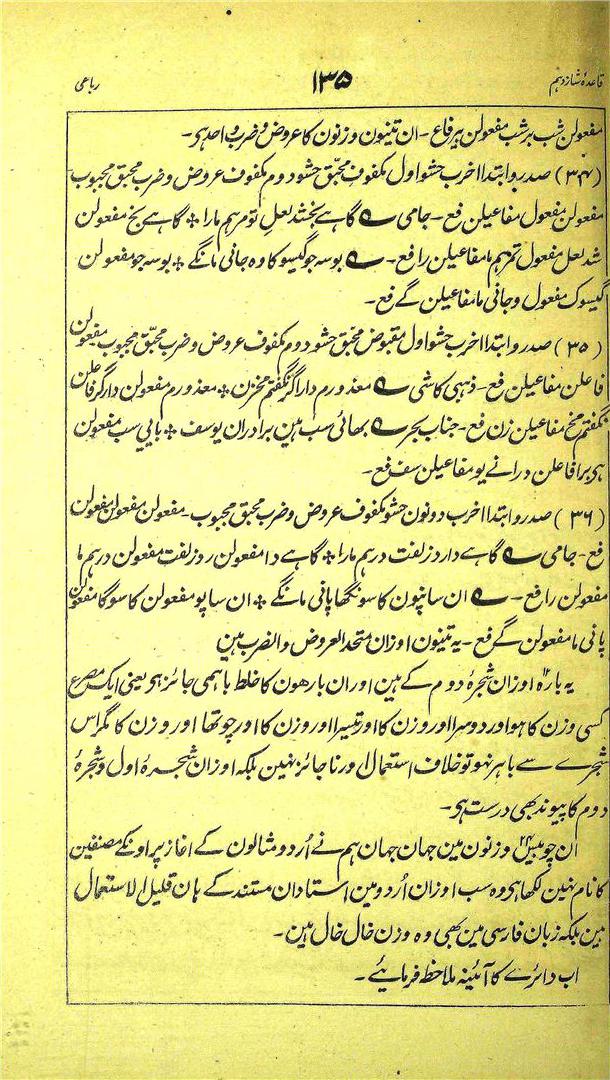 قاعدۂ شانزدہم ۱۳۵ رباعی
مفعولن شب برشب مفعولن بیرفاع ۔ ان تینون وزنون کا عروض و ضرب واحد ہی۔
(۳۴) صدر و ابتدا اخرب حشو اول مکفوف مخبق حشو دوم مکفوف عروض و ضرب مخبق مجبوب
مفعولن مفعول مفاعیلن فع ۔ جامی ؎ گاہے بخشد لعل تو مرہم مارا ٭ گاہے بخ مفعولن
شد لعل مفعول تمرہم ما مفاعیلن را فع ۔ ؎ بوسہ جو گیسو کا وہ جانی مانگے ٭ بوسہ جو مفعولن
گیسوک مفعول و جانی ما مفاعیلن گے فع ۔
(۳۵) صدر و ابتدا اخرب حشو اول مقبوض مخبق حشو دوم مکفوف عروض و ضرب مخبق مجبوب مفعولن
فاعلن مفاعیلن فع ۔ ذہبی کاشی ؎ معذورم دار اگر نگفتم مخزن ٭ معذورم مفعولن دارگر فاعلن
نگفتم مخ مفاعیلن زن فع ۔ جناب بحر ؎ بھائی سب ہین برادران یوسف ٭ بایی سب مفعولن
ہی برا فاعلن درانے یو مفاعیلن سف فع ۔
(۳۶) صدر و ابتدا اخرب دونون حشو مکفوف عروض و ضرب مخبق مجبوب ۔ مفعولن مفعولن مفعولن
فع ۔ جامی ؎ گاہے دارد زلفت درہم مارا ٭ گاہے دا مفعولن رد زلفت مفعولن درہم ما
مفعولن را فع ۔ ؎ ان سانپون کا سونگھا پانی مانگے ٭ ان ساپو مفعولن کا سوگا مفعولن
پانی ما مفعولن گے فع ۔ یہ تینون اوزان متحد العروض والضرب ہین
یہ بارہ اوزان شجرۂ دوم کے ہین اور ان بارھون کا خلط باہمی جائز ہی یعنی ایک مصرع
کسی وزن کا ہو اور دوسرا اور وزن کا اور تیسرا اور وزن کا اور چوتھا اور وزن کا مگر اس
شجرے سے باہر نہو تو خلاف استعمال اور ناجائز نہین بلکہ اوزان شجرہ اول و شجرۂ
دوم کا پیوند بھی درست ہی ۔
ان چوبیس وزنون مین جہان جہان ہم نے اُردو مثالون کے آغاز پر اونکے مصنفین
کا نام نہین لکھا ہی وہ سب اوزان اُردو مین استادان مستند کے ہان قلیل الاستعمال
ہین بلکہ زبان فارسی مین بھی وہ وزن خال خال ہین ۔
اب دائرے کا آئینہ ملاحظہ فرمائیے ۔